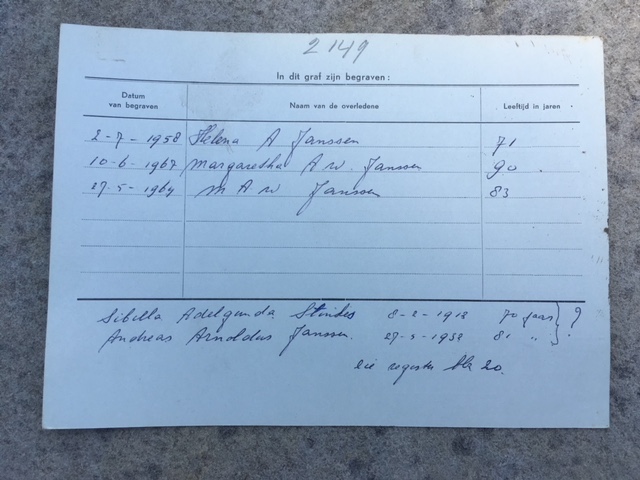 2149
In dit graf zijn begraven:
Datum van begraven Naam van de overledene Leeftijd in jaren
2-7-1958 Helena A Janssen 71
10-6-1967 Margaretha A W. Janssen 90
27-5-1964 M A W Janssen 83
Sibilla Adelgunda 8-2-1918 70 jaar } ?
Andreas Arnoldus Janssen. 27-5-1932 81 "
zie register blz 20.